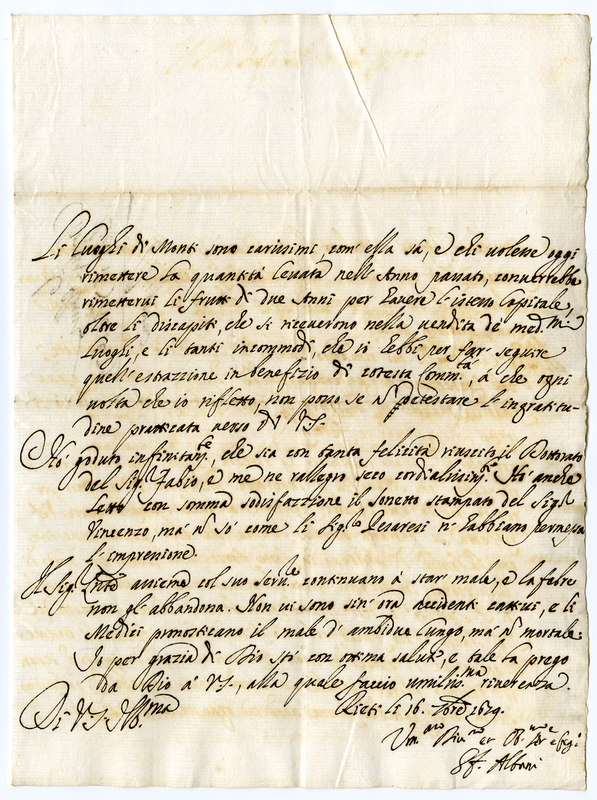 Li Luoghi di Monti sono carissimi, com' ella sà, e chi volesse oggi
rimettere la quantità levata nell' Anno passato, converrebbe
rimettervi li frutti di due Anni per havere l' istesso Capitale,
oltre li discapiti, che si riceverono nella vendita de' med.mi
Luoghi, e li tanti incommodi, che io hebbi per far' seguire
quell' estrazzione in benefizio di cotesta Comm.tà, à che ogni
volta che io rifletto, non posso se nō detestare l' ingratitu-
dine pratticata verso di V.S.
Hò goduto infinitam.te, che sia con tanta felicità riuscito il Dottorato
del Sig.r Fabio, e me ne rallegro seco cordialissim.te. Hò anche
letto con somma sodisfazzione il sonetto stampato del Sig.r
Vincenzo, mà nō sò come li Sig.ri Pesaresi n' habbiano permessa
l' impressione.
Il Sig.r assieme col suo continuano à star' male, e la febre
non gl' abbandona. Non vi sono sin' ora accidenti cattivi, e li
Medici pronosticano il male d' ambidue lungo, mà nō mortale.
Io per grazia di Dio stò con ottima salute, e tale la prego
da Dio à V.S., alla quale faccio umiliss.ma riverenza.
Di V.S. Ill.ma Rieti li 16. 1679.
et
Albani